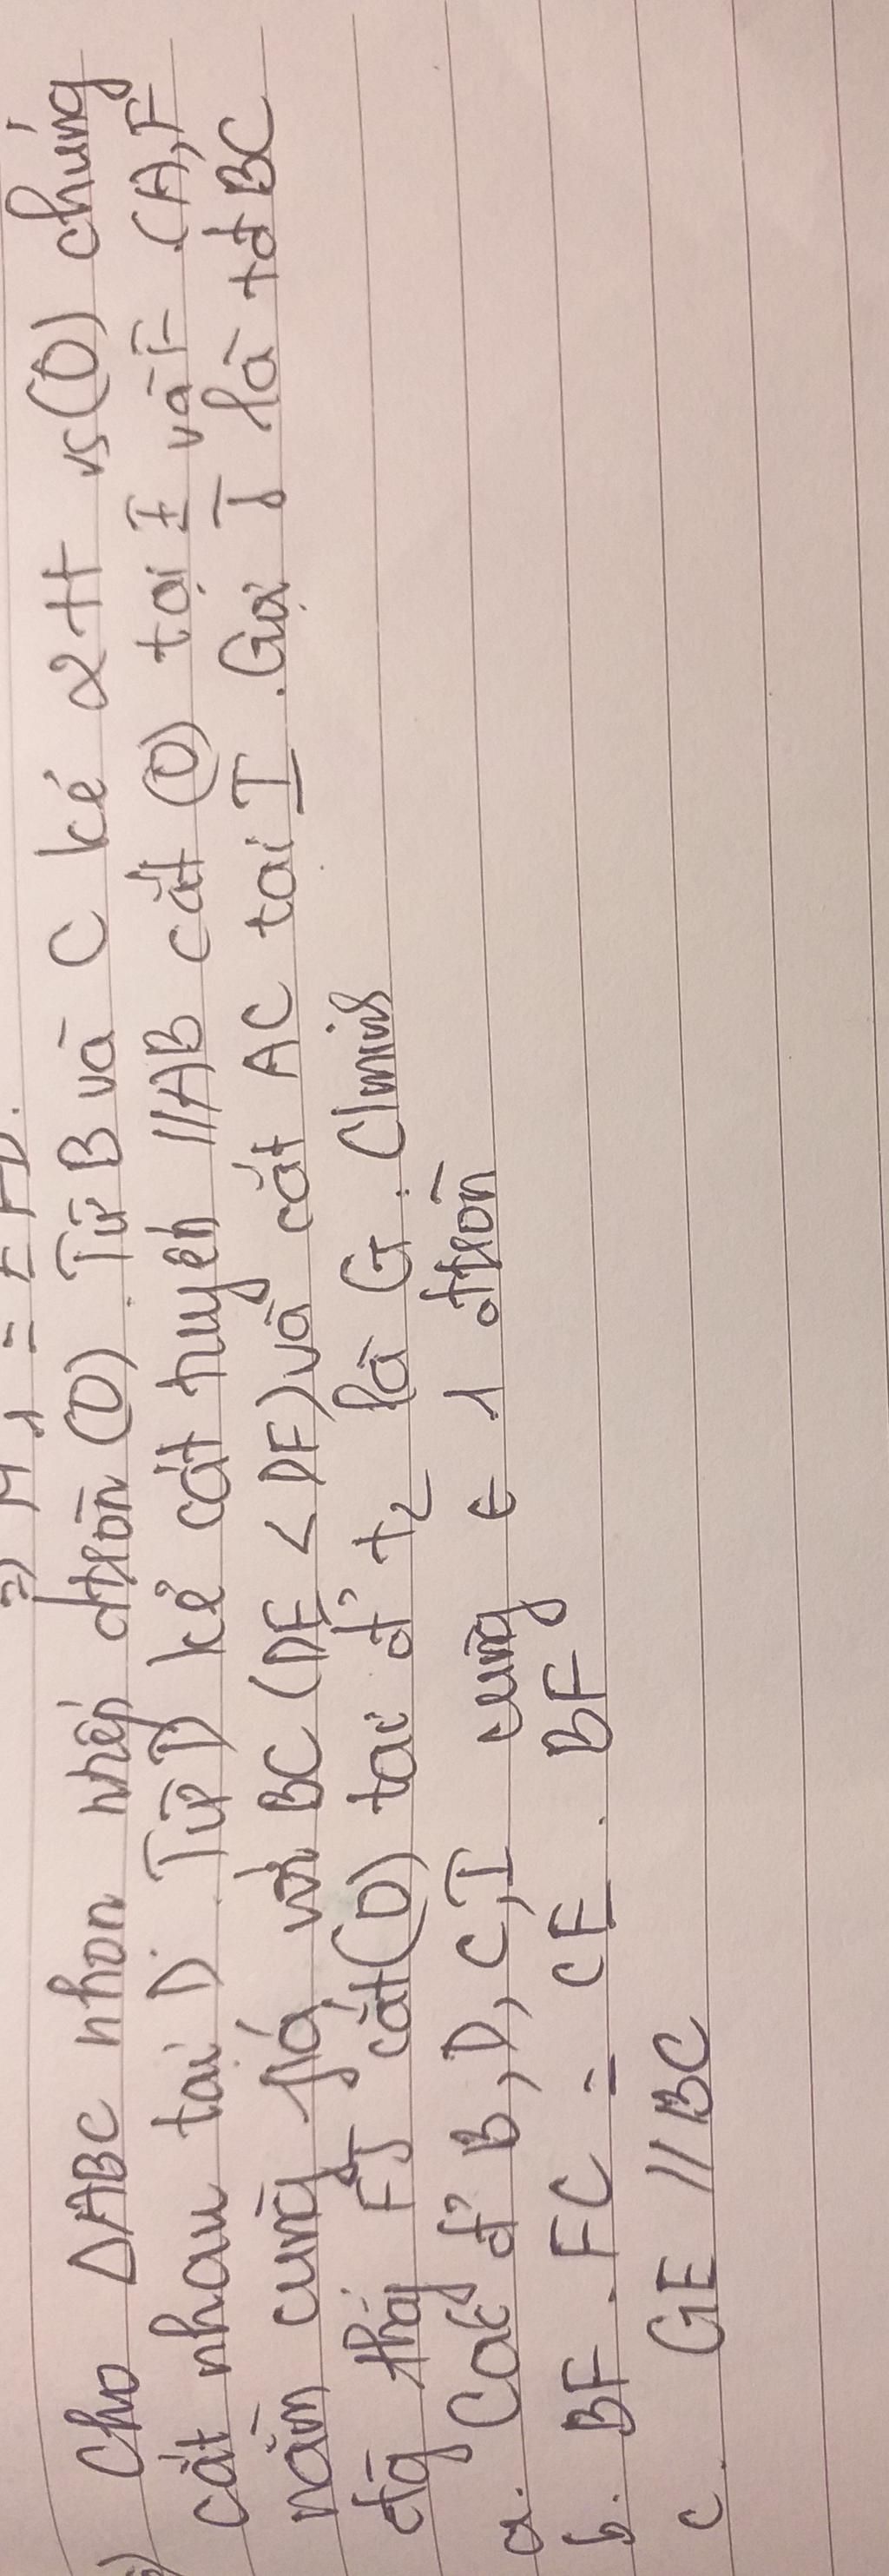 =) M1 = EFD.
Cho ΔABC nhọn nhếp đtròn (O). Từ B và C kẻ 2tt vs (O) chúng
cắt nhau tại D. Từ D kẻ cát tuyến //AB cắt (O) tại E và F (A,F
nằm cùng phía với BC (DE < DF) và cắt AC tại I. Gọi J là td BC
đg thg FJ cắt (O) tại đ' t2 là G. Cminh
a. Các đ' B, D, C, I cùng ∈ 1 đtròn
b. BF. FC = CE. BF
c. GE // BC